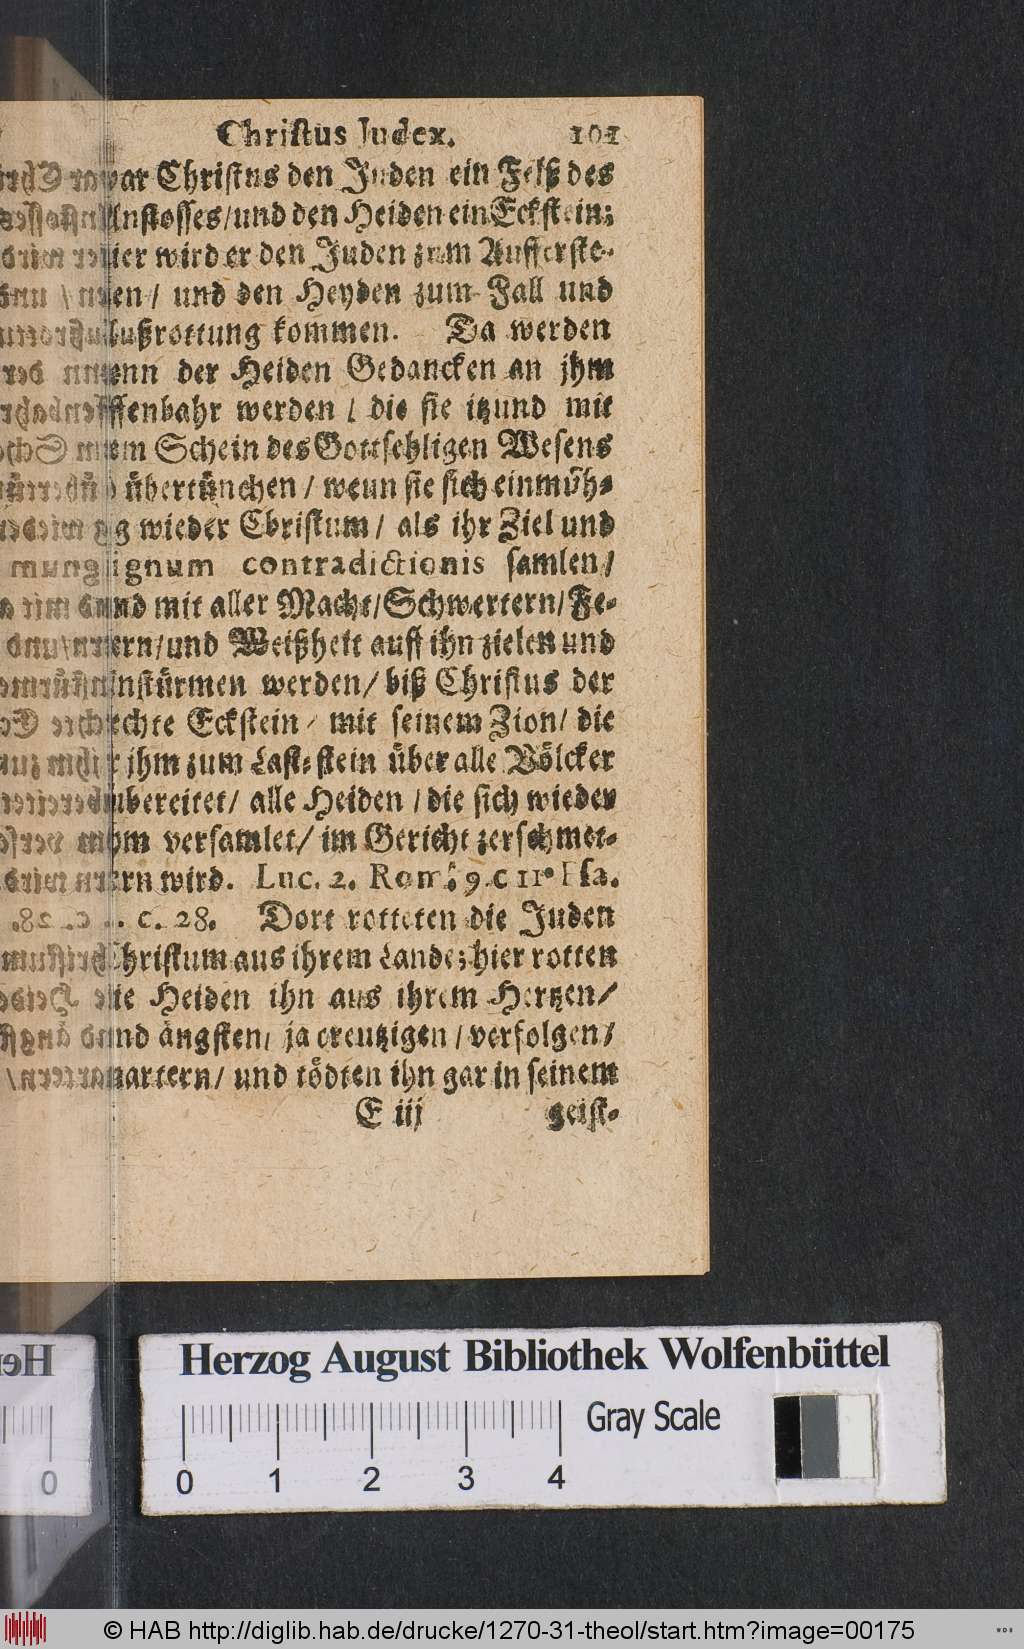 Christus Iudex. 101
war Christus den Juden ein Felß des
Anstosses/und den Heiden ein Eckstein;
hier wird er den Juden zum Aufferste-
hen/ und den Heyden zum Fall und
Außrottung kommen. Da werden
denn der Heiden Gedancken an jhm
offenbahr werden / die sie itzund mit
dem Schein des Gottsehligen Wesens
übertünchen / weun sie sich einmüh-
tig wieder Christum/ als ihr Ziel und
signum contradictionis samlen/
und mit aller Macht/Schwertern/Fe-
dern/und Weißheit auff ihn zielen und
anstürmen werden/ biß Christus der
rechte Eckstein/ mit seinem Zion/ die
er ihm zum Last-stein über alle Völcker
zubereitet/ alle Heiden / die sich wieder
ihm versamlet/ im Gericht zerschmet-
tern wird. Luc. 2. Rom. 9. c 11. Esa.
c. 28. Dort rotteten die Juden
Christum aus ihrem Lande; hier rotten
die Heiden ihn aus ihrem Hertzen/
und ängsten/ ja creutzigen / verfolgen/
martern/ und tödten ihn gar in seinem
E iij geist-
Herzog August Bibliothek Wolfenbüttel
Gray Scale
0 1 2 3 4
© HAB http://diglib.hab.de/drucke/1270-31-theol/start.htm?image=00175